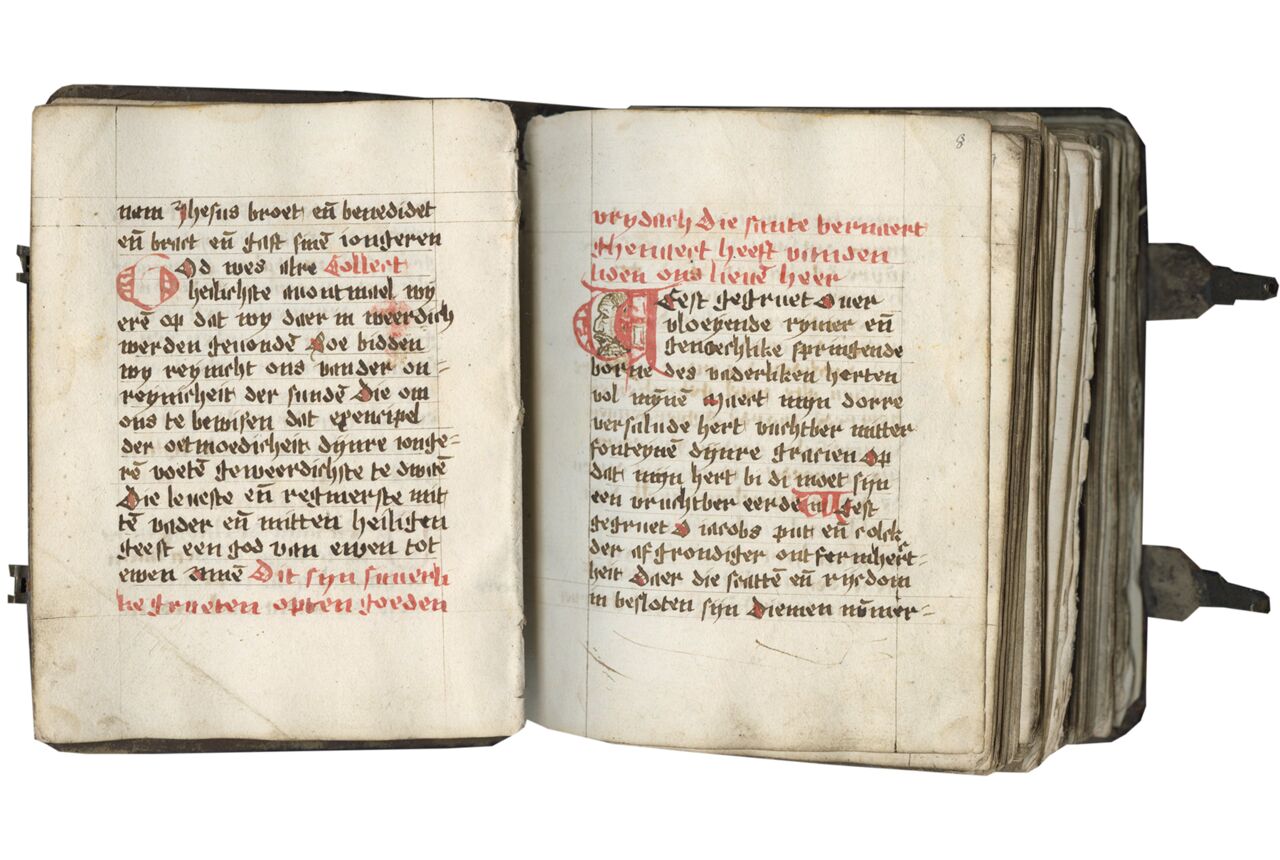 nam Jhesus broet en̄ benedidet
en̄ bract en̄ gaft sinē iongeren
God wes alre Collect
heilichste auontmael wy
erē op dat wy daer in weerdich
werden geuondē Soe bidden
wy reynicht ons vander on-
reynicheit der sundē Die om
ons te bewisen dat exencipel
der oetmoedicheit dynre ionge-
rē voetē geweerdichste te dwaē
Die leueste en̄ regnierste mit
tē vader en̄ mitten heiligen
geest een god van ewen tot
ewen Amē Dit syn suuerli
ke grueten opten goeden
8
vrydach die sante bernaert
ghemaect heeft vanden
liden ons lieuē heer
Gest gegruet Ouer
vloeyende rymer en̄
genoechlike springende
borne des vaderliken herten
vol mynē Maect myn dorre
versalude hert vruchtber mitter
fonteynē dynre gracien Op
dat myn hert bi di moet syn
een vruchtber eerde Weest
gegruet O iacobs put en̄ colck
der afgrondiger ontfermhert-
heit Daer die scattē en̄ rycdom
in besloten syn Diemen nūmer-